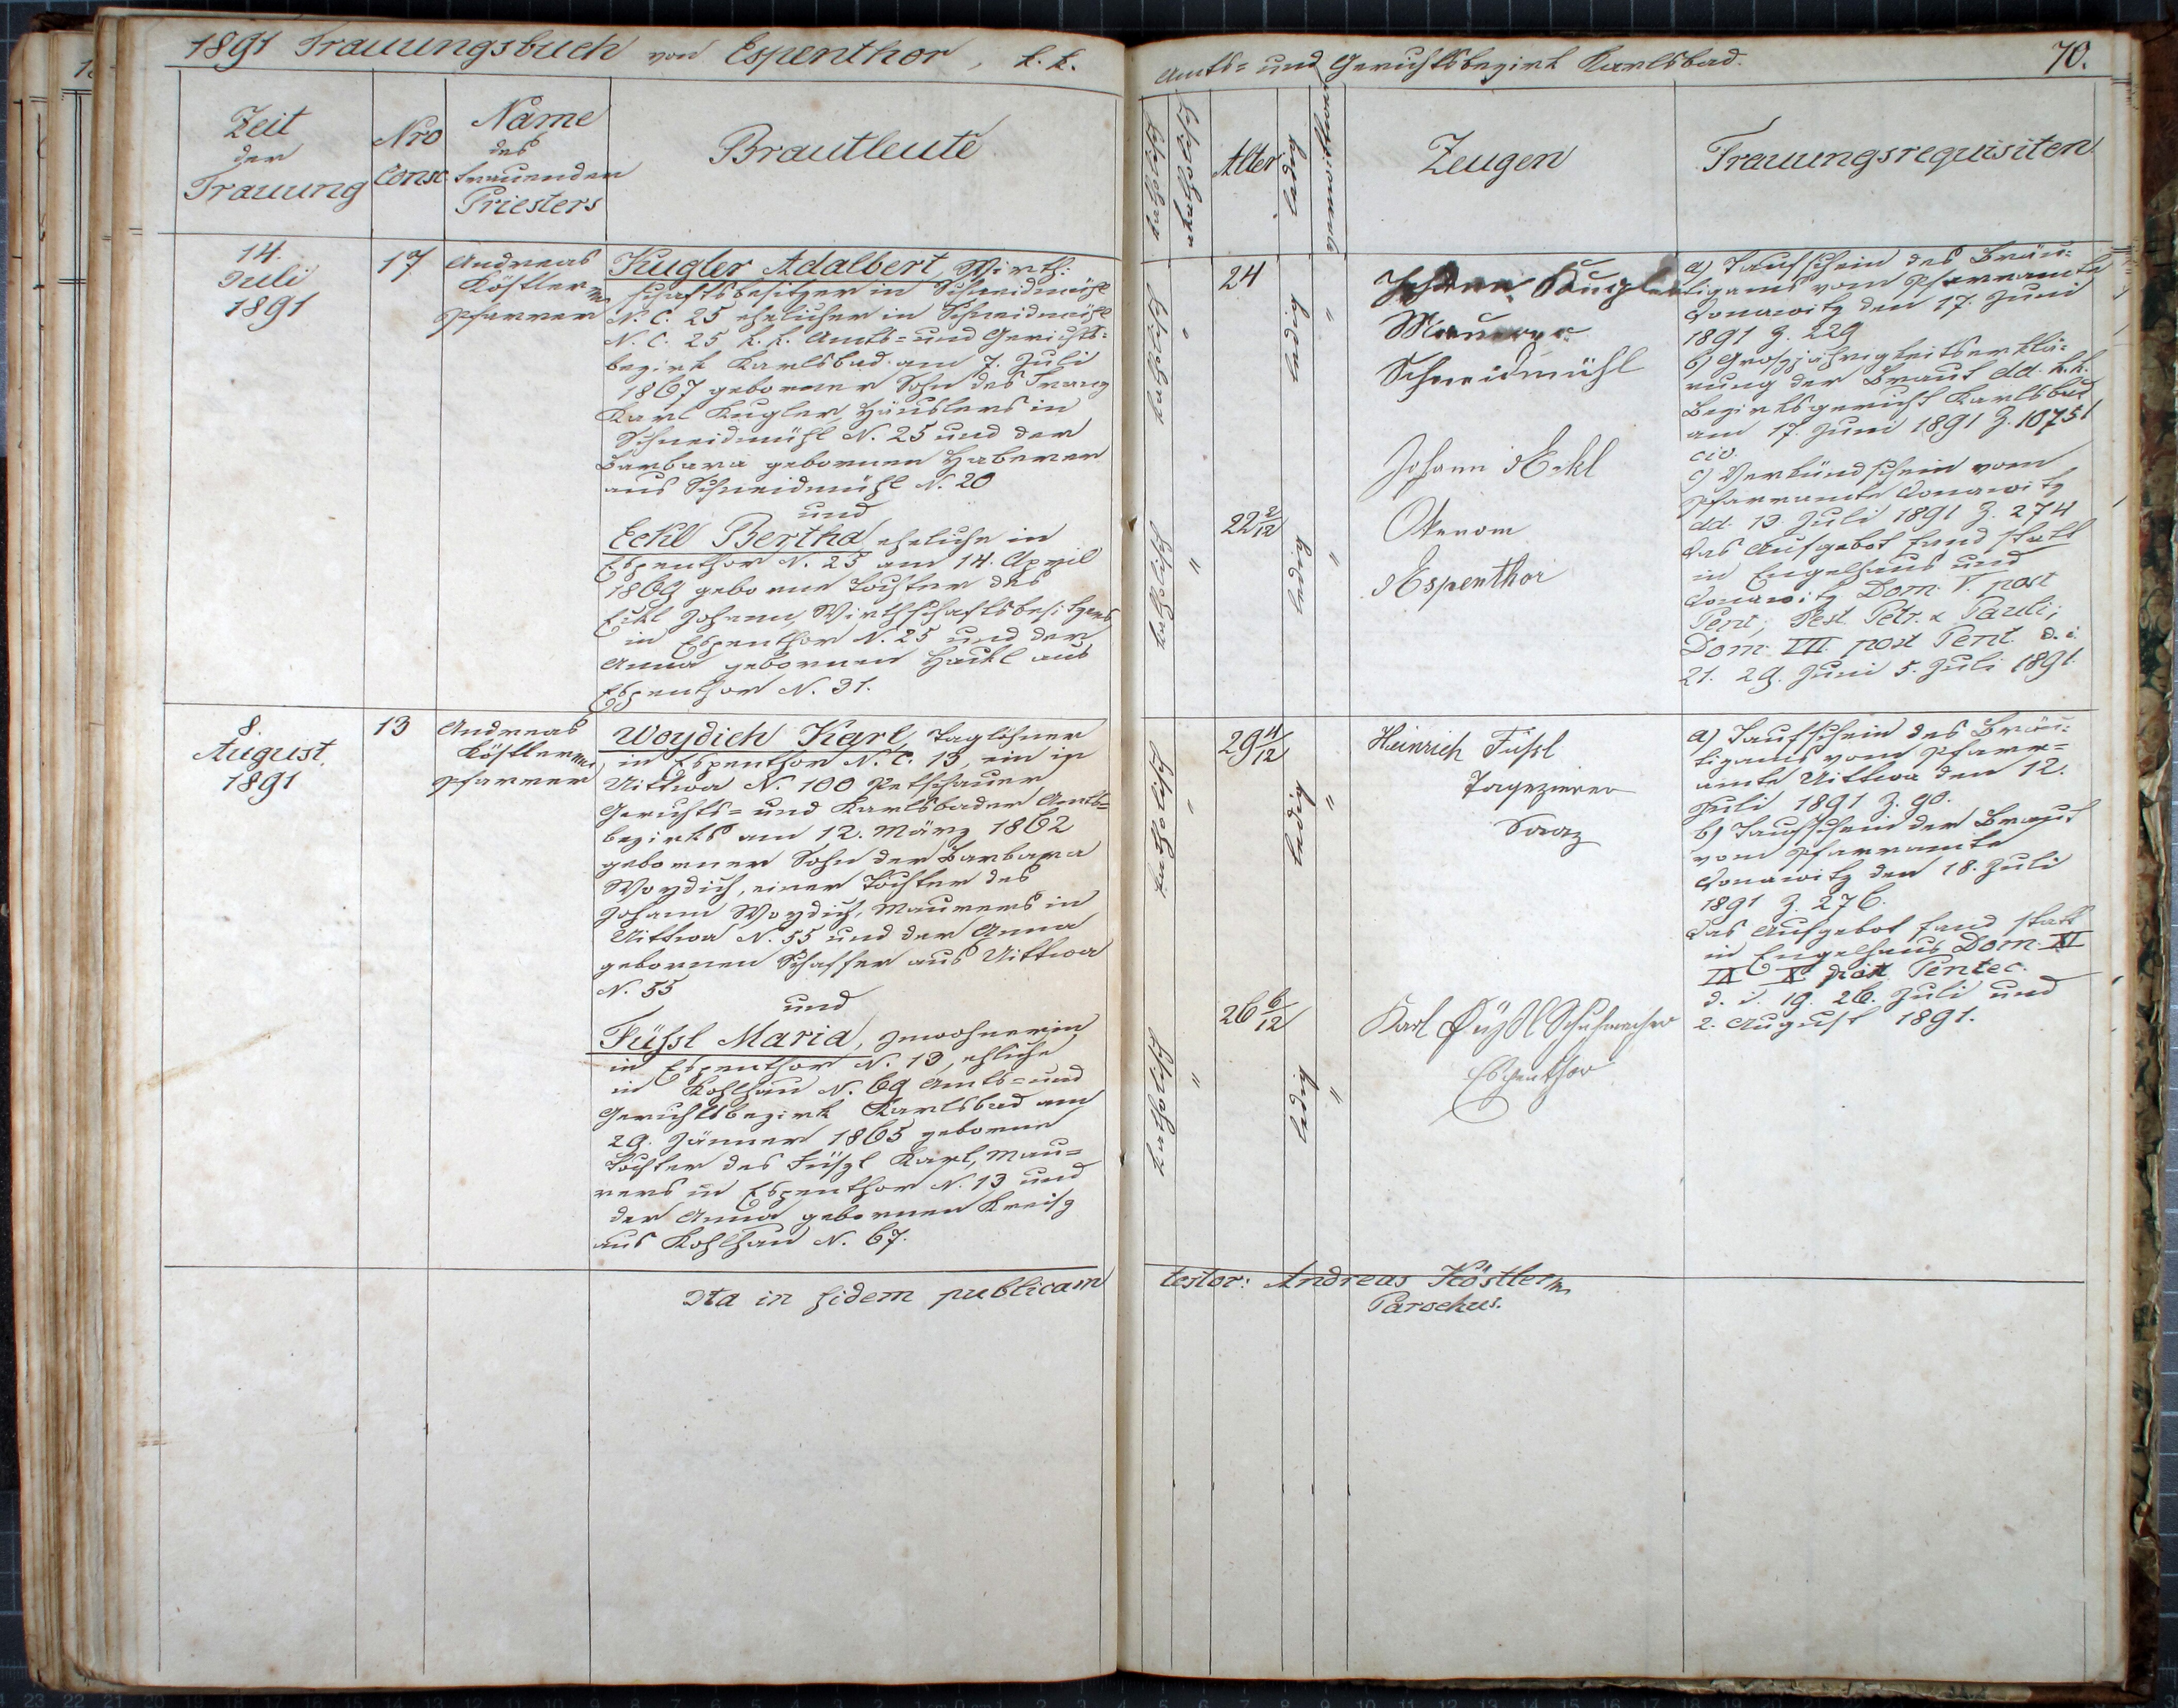 1891 Trauungsbuch von Espenthor, k. k.
Amts- und Gerichtsbezirk Karlsbad.
70.
Zeit
der
Trauung
Nro
Consc.
Name
des
trauenden
Priesters
Brautleute
katholisch
akatholisch
Alter
ledig
verwittwet
Zeugen
Trauungsrequisiten
14.
Juli
1891
17
Andreas
Köstler
Pfarrer
Kugler Adalbert, Wirth-
schaftsbesitzer in Schneidmühl
N. C. 25 ehelicher in Schneidmühl
N. C. 25 k. k. Amts- und Gerichts-
bezirk Karlsbad am 7. Juli
1867 geborener Sohn des Franz
Karl Kugler, Häuslers in
Schneidmühl N. 25 und der
Barbara gebornen Haberer
aus Schneidmühl N. 20
und
Eckl Bertha eheliche in
Espenthor N. 25 am 14. April
1869 geborene Tochter des
Eckl Johann, Wirthschaftsbesitzers
in Espenthor N. 25 und der
Anna gebornen Hackl aus
Espenthor N. 31.
katholisch
"
24
ledig
"
Kugler
Maurer
Schneidmühl
katholisch
"
22 2/12
ledig
"
Johann Eckl
Okenom
Espenthor
a) Taufschein des Bräu-
tigams vom Pfarramte
Donawitz den 17. Juni
1891 Z. 229
b) Großjährigkeitserklä-
rung der Braut dd. k. k.
Bezirksgericht Karlsbad
am 17. Juni 1891 Z. 10751
civ.
c) Verkündschein vom
Pfarramte Donawitz
dd. 13. Juli 1891 Z. 274
Das Aufgebot fand statt
in Engelhaus und
Donawitz Dom. V. post
Pent; Fest. Petr. & Pauli;
Dom. VII. post Pent. d. i.
21. 29. Juni 5. Juli 1891.
8.
August
1891
13
Andreas
Köstler
Pfarrer
Woydich Karl, Taglöhner
in Espenthor N. C. 13, ein in
Uittwa N. 100 Petschauer
Gerichts- und Karlsbader Amts-
bezirks am 12. März 1862
geborener Sohn der Barbara
Woydich, einer Tochter des
Johann Woydich, Maurers in
Uittwa N. 55 und der Anna
gebornen Schaffer aus Uittwa
N. 55
und
Füssl Maria, Inwohnerin
in Espenthor N. 13, ehliche
in Kohlhau N. 69 Amts- und
Gerichtsbezirk Karlsbad am
29. Jänner 1865 geborene
Tochter des Füssl Karl, Mau-
rers in Espenthor N. 13 und
der Anna gebornen Kreisz
aus Kohlhau N. 67.
katholisch
"
29 4/12
ledig
"
Heinrich Füssl
Tapezierer
Saaz
katholisch
"
26 6/12
ledig
"
Karl Füssl Schuhmacher
Espenthor
a) Taufschein des Bräu-
tigams vom Pfarr-
amte Uittwa den 12.
Juli 1891 Z. 90.
b) Taufschein der Braut
vom Pfarramte
Donawitz den 18. Juli
1891 Z. 276.
Das Aufgebot fand statt
in Engelhaus Dom. XI
IX X post Pentec.
d. i. 19. 26. Juli und
2. August 1891.
Ita in fidem publicam
testor: Andreas Köstler
Parochus.